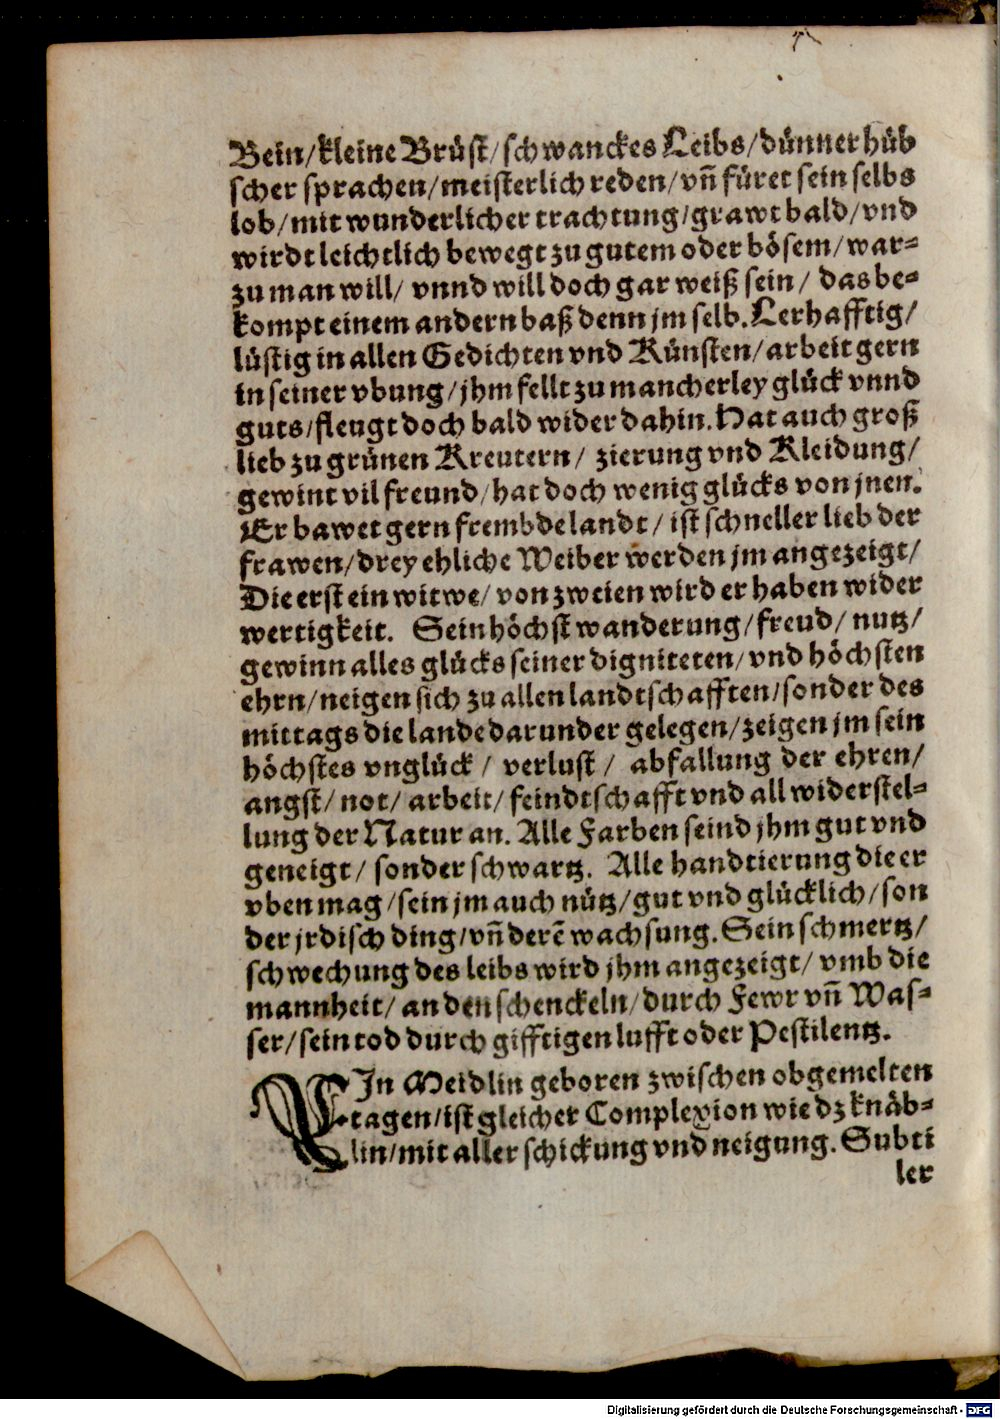 Bein/kleine Brüst/schwanckes Leibs/dünner hüb
scher sprachen/meisterlich reden/vñ füret sein selbs
lob/mit wunderlicher trachtung/grawt bald/vnd
wirdt leichtlich bewegt zu gutem oder bösem/war-
zu man will/ vnnd will doch gar weiß sein/ das be-
kompt einem andern baß denn jm selb. Lerhafftig/
lüstig in allen Gedichten vnd Künsten/arbeit gern
in seiner vbung/jhm fellt zu mancherley glück vnnd
guts/fleugt doch bald wider dahin. Hat auch groß
lieb zu grünen Kreutern/ zierung vnd Kleidung/
gewint vil freund/hat doch wenig glücks von jnen.
Er bawet gern frembde landt/ ist schneller lieb der
frawen/drey ehliche Weiber werden jm angezeigt/
Die erst ein witwe/ von zweien wird er haben wider
wertigkeit. Sein höchst wanderung/freud/ nutz/
gewinn alles glücks seiner digniteten/vnd höchsten
ehrn/neigen sich zu allen landtschafften/sonder des
mittags die lande darunder gelegen/zeigen jm sein
höchstes vnglück / verlust / abfallung der ehren/
angst/ not/ arbeit/ feindtschafft vnd all widerstel-
lung der Natur an. Alle Farben seind jhm gut vnd
geneigt/ sonder schwartz. Alle handtierung die er
vben mag/sein jm auch nütz/gut vnd glücklich/son
der jrdisch ding/vñ derē wachsung. Sein schmertz/
schwechung des leibs wird jhm angezeigt/ vmb die
mannheit/ an den schenckeln/durch Fewr vñ Was-
ser/sein tod durch gifftigen lufft oder Pestilentz.
EIn Meidlin geboren zwischen obgemelten
tagen/ist gleicher Complexion wie dz knäb-
lin/mit aller schickung vnd neigung. Subti
ler
Digitalisierung gefördert durch die Deutsche Forschungsgemeinschaft - DFG